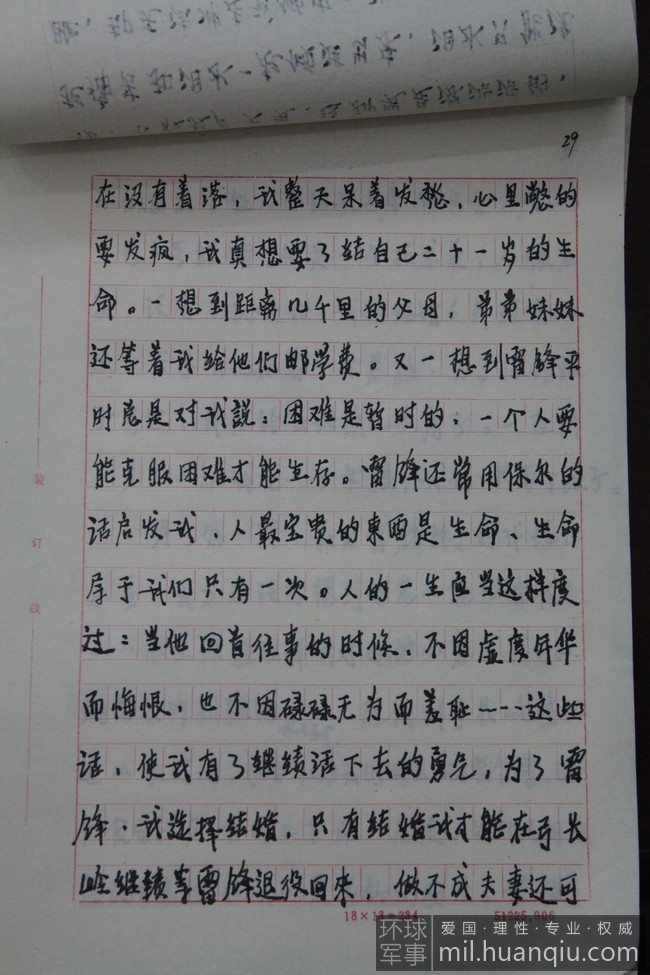 29
在没有着落，我整天呆着发愁，心里憋的
要发疯，我真想要了结自己二十一岁的生
命。一想到距离几千里的父母，弟弟妹妹
还等着我给他们邮学费。又一想到雷锋平
时总是对我説：困难是暂时的，一个人要
能克服困难才能生存。雷锋还常用保尔的
话启发我，人最宝贵的東西是生命、生命
属于我们只有一次。人的一生应当这样度
过：当他回首往事的时候，不因虚度年华
而悔恨，也不因碌碌无为而羞耻……这些
话，使我有了继续活下去的勇气，为了雷
锋，我选择结婚，只有结婚我才能在弓长
岭继续等雷锋退役回来，做不成夫妻还可
装
订
线
18×13=234
环球
军事
爱国·理性·专业·权威
mil.huanqiu.com